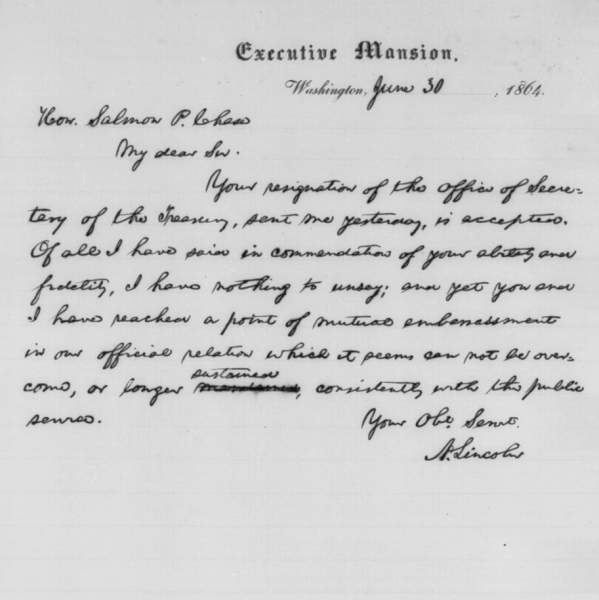 Executive Mansion,
Washington, June 30, 1864.
Hon. Salmon P. Chase
My dear Sir.
Your resignation of the office of Secre-
tary of the Treasury, sent me yesterday, is accepted.
Of all I have said in commendation of your ability and
fidelity, I have nothing to unsay; and yet you and
I have reached a point of mutual embarrassment
in our official relation which it seems can not be over-
come, or longer sustained, consistently with the public
service.
Your Obt. Servt.
A. Lincoln